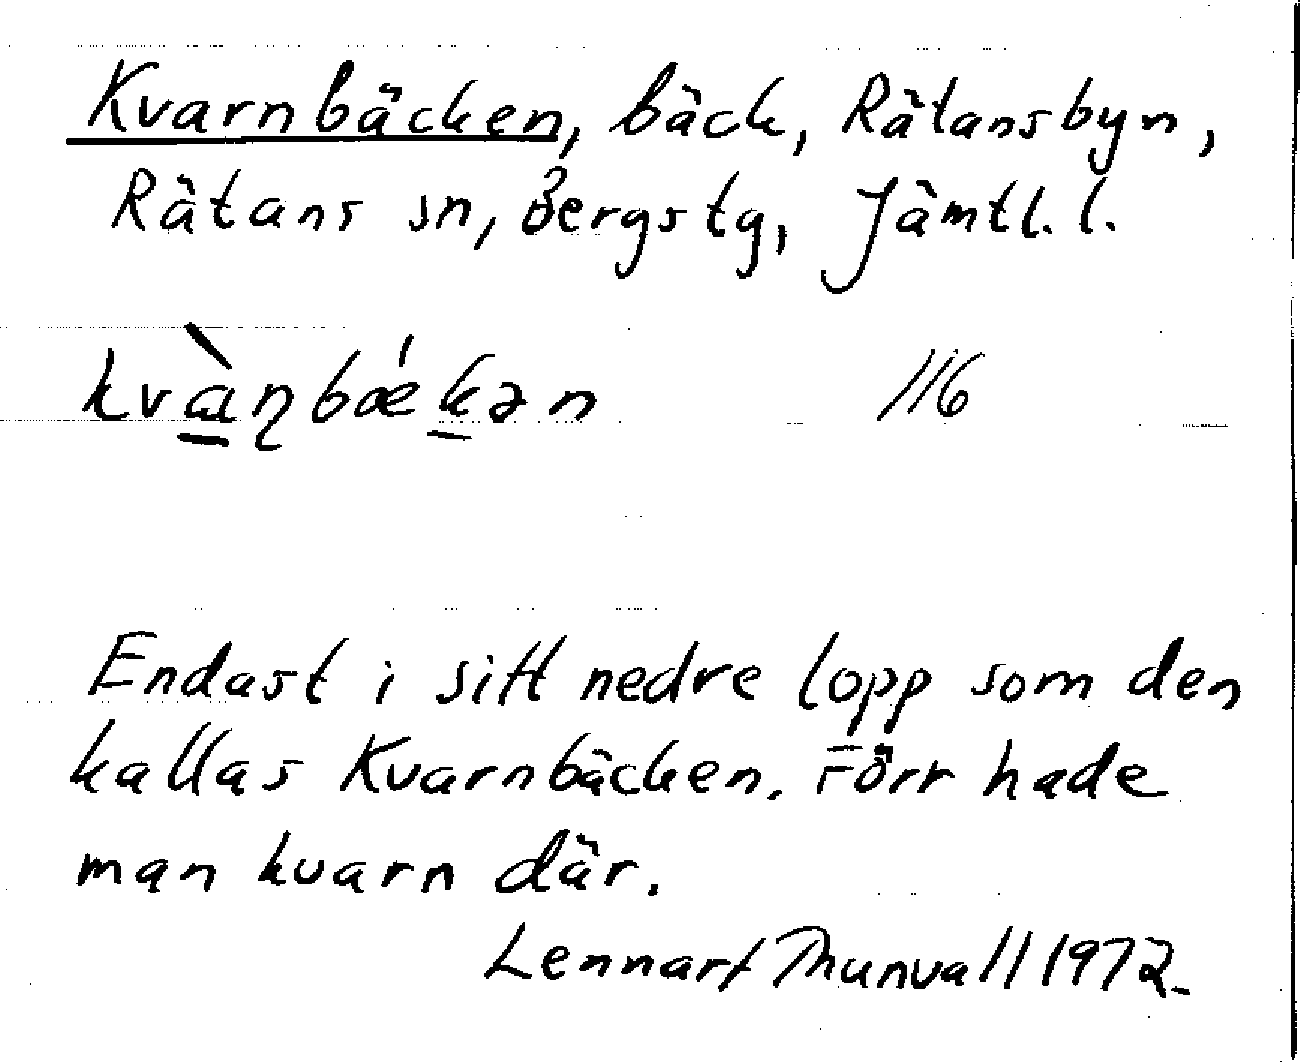 Kvarnbäcken, bäck, Rätansbyn,
Rätans sn, Bergs tg, Jämtl. l.
kvàɳbǽkən 116
Endast i sitt nedre lopp som den
kallas Kvarnbäcken. Förr hade
man kvarn där.
Lennart Thunvall 1972.